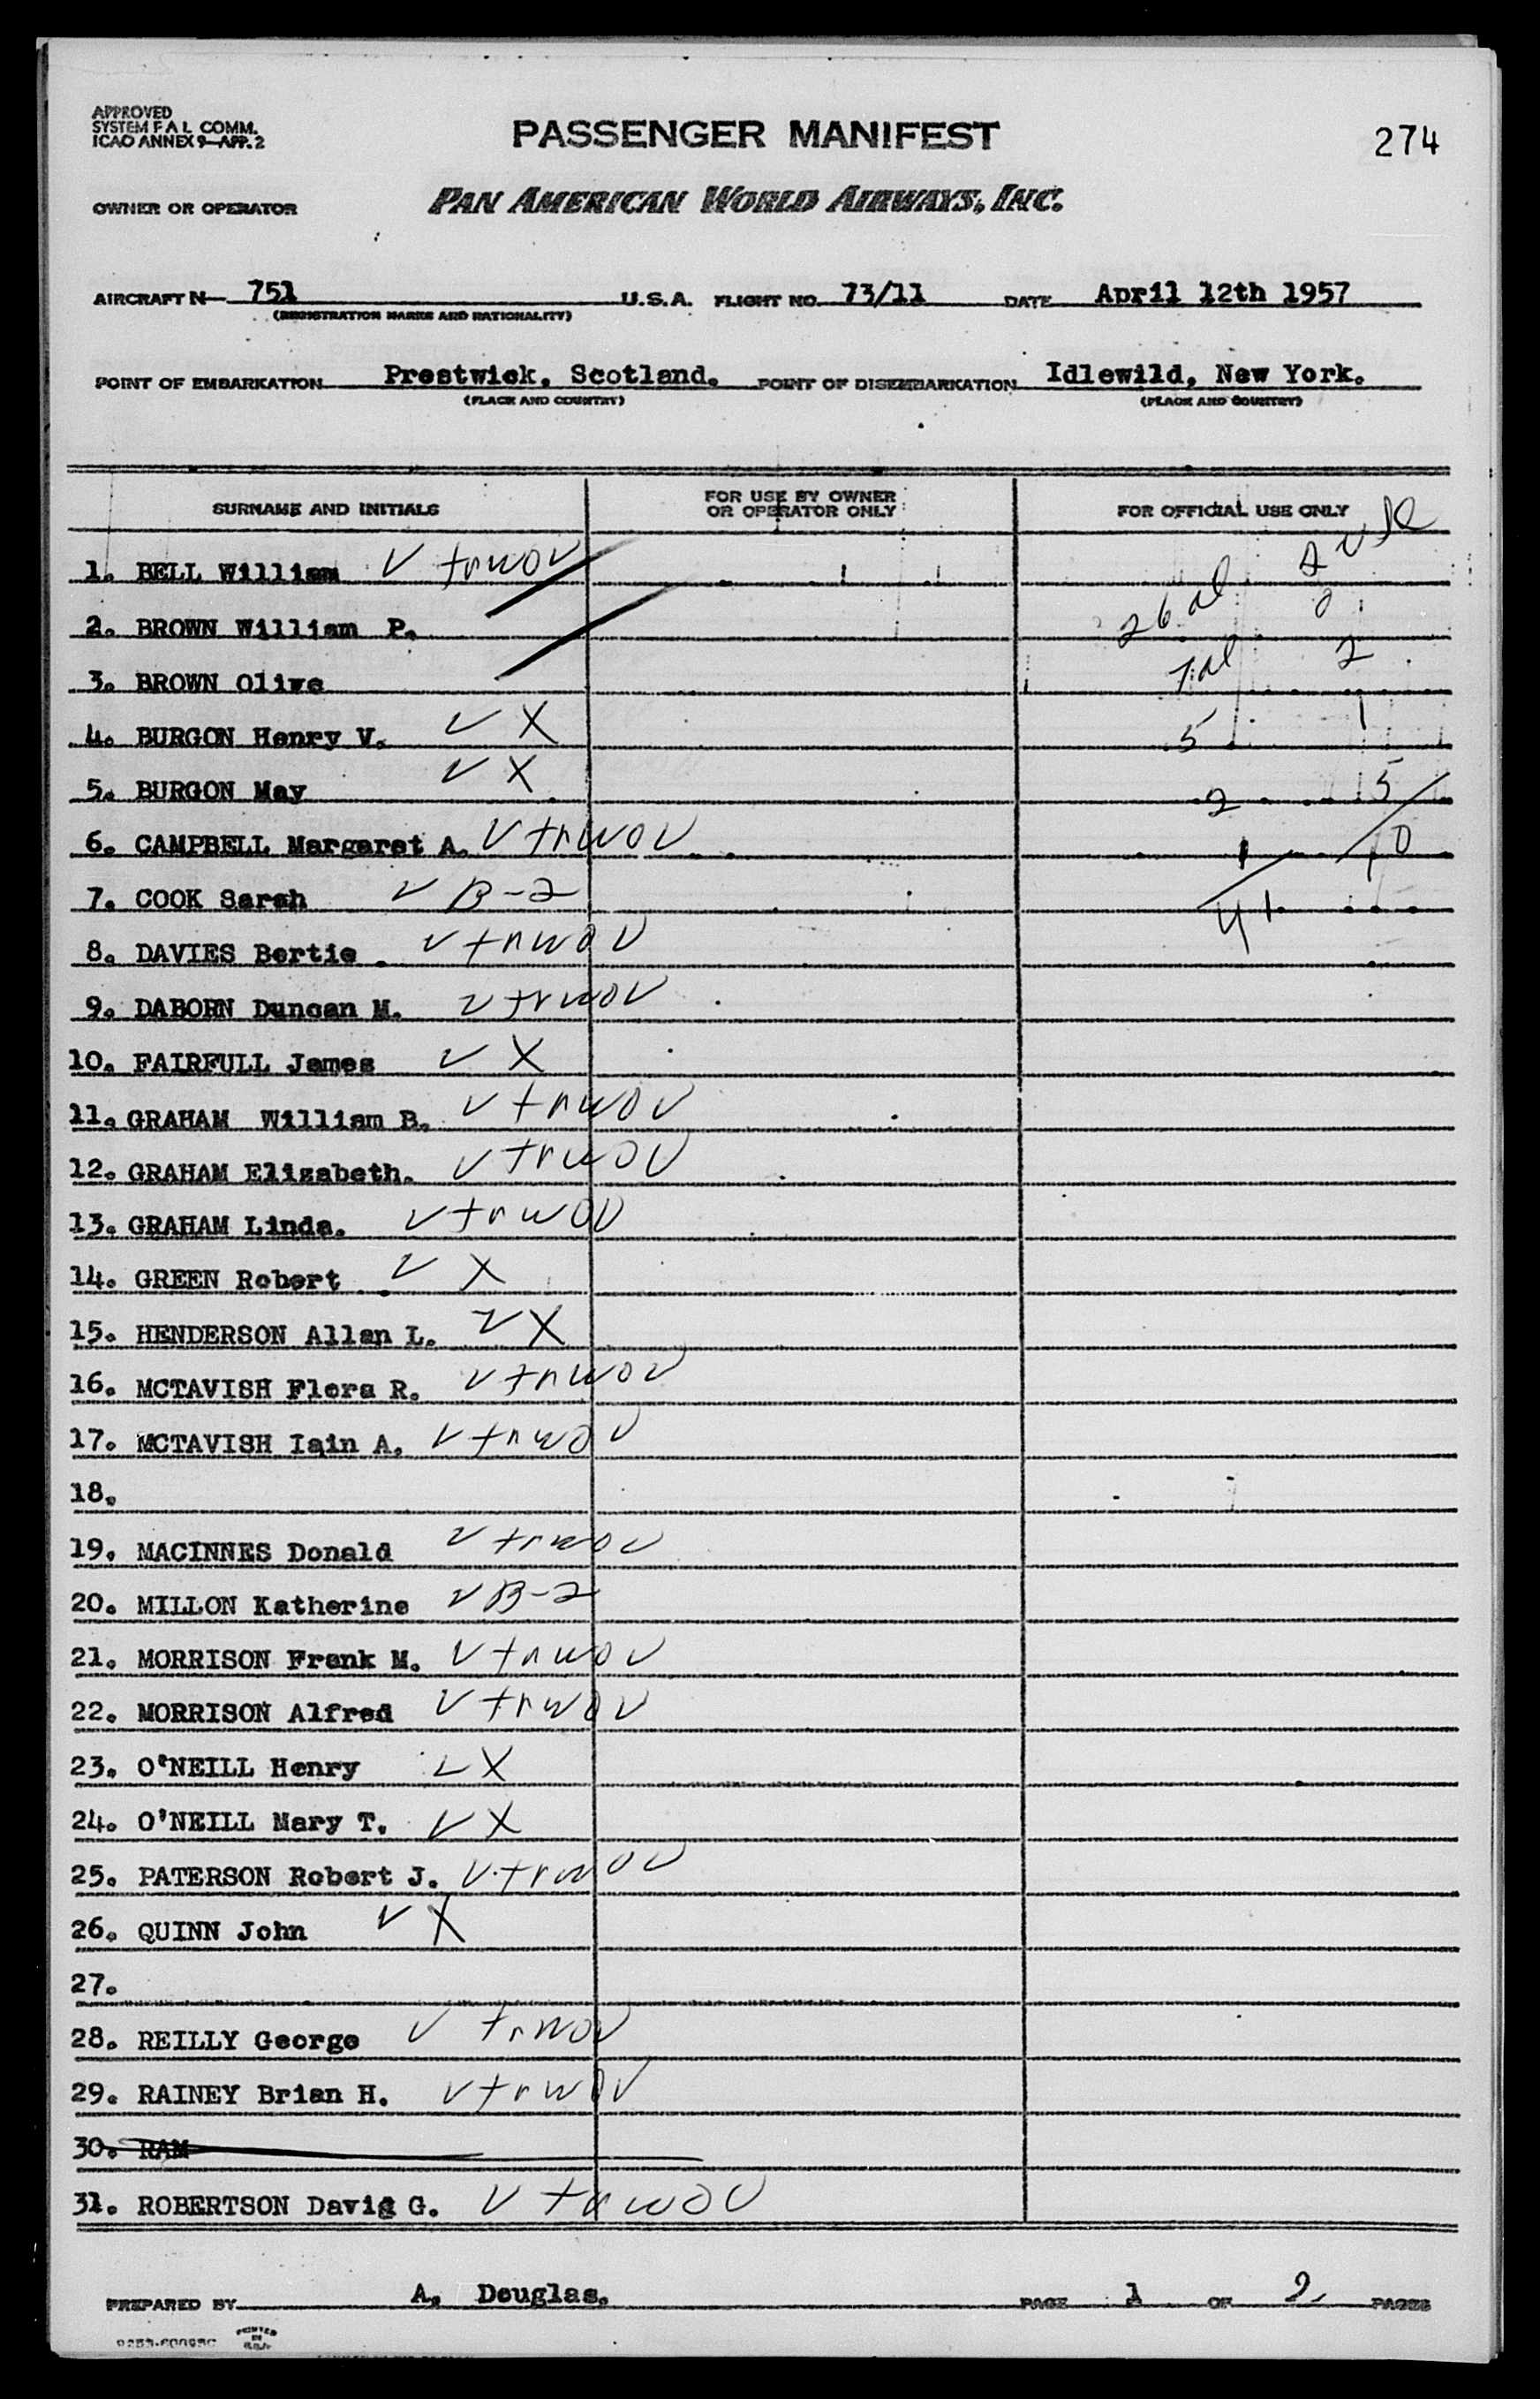 APPROVED
SYSTEM F A L COMM.
ICAO ANNEX 9—APP. 2
PASSENGER MANIFEST
274
OWNER OR OPERATOR
PAN AMERICAN WORLD AIRWAYS, INC.
AIRCRAFT N— 751 U.S.A. FLIGHT NO. 73/11 DATE April 12th 1957
(REGISTRATION MARKS AND NATIONALITY)
POINT OF EMBARKATION Prestwick, Scotland. POINT OF DISEMBARKATION Idlewild, New York.
(PLACE AND COUNTRY) (PLACE AND COUNTRY)
SURNAME AND INITIALS FOR USE BY OWNER OR OPERATOR ONLY FOR OFFICIAL USE ONLY
1. BELL William V trwov
2. BROWN William P. 26 al
3. BROWN Olive 7 al 2
4. BURGON Henry V. V X 5 1
5. BURGON May V X 2 5
6. CAMPBELL Margaret A. V trwov 1 10
7. COOK Sarah V B-2 41
8. DAVIES Bertie V trwov
9. DABORN Duncan M. V trwov
10. FAIRFULL James V X
11. GRAHAM William B. V trwov
12. GRAHAM Elizabeth. V trwov
13. GRAHAM Linda. V trwov
14. GREEN Robert V X
15. HENDERSON Allan L. V X
16. MCTAVISH Flora R. V trwov
17. MCTAVISH Iain A. V trwov
18.
19. MACINNES Donald V trwov
20. MILLON Katherine V B-2
21. MORRISON Frank M. V trwov
22. MORRISON Alfred V trwov
23. O'NEILL Henry V X
24. O'NEILL Mary T. V X
25. PATERSON Robert J. V trwov
26. QUINN John V X
27.
28. REILLY George V trwov
29. RAINEY Brian H. V trwov
30. RAM
31. ROBERTSON David G. V trwov
PREPARED BY A. Douglas. PAGE 1 OF 2 PAGES
PRINTED
IN
U.S.A.